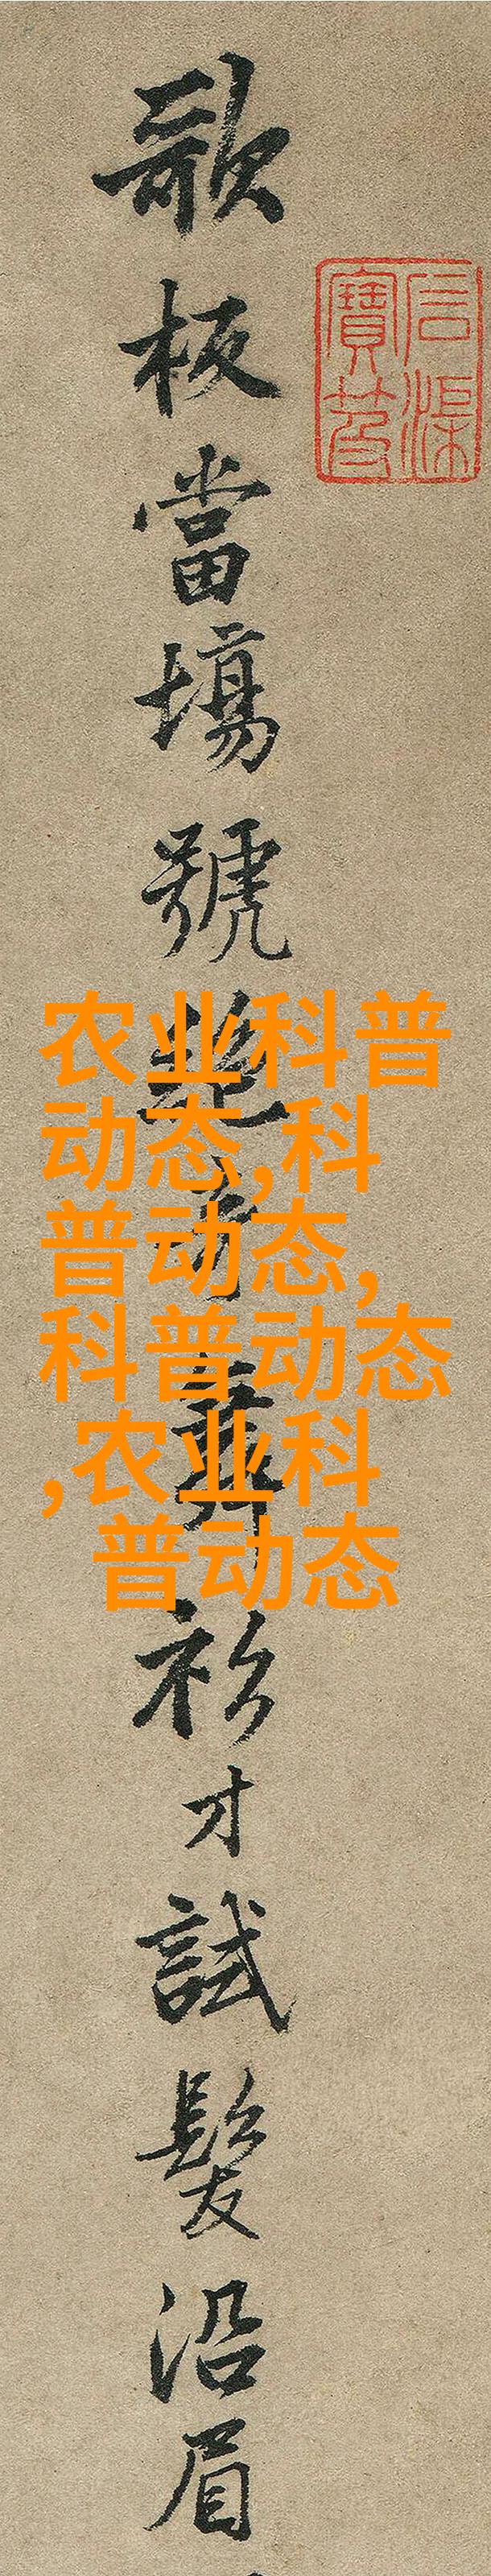 歌板當場號絶舞衫才試髮沿眉
石渠
寶笈
农业科普
动态,科
普动态,
科普动态
,农业科
普动态